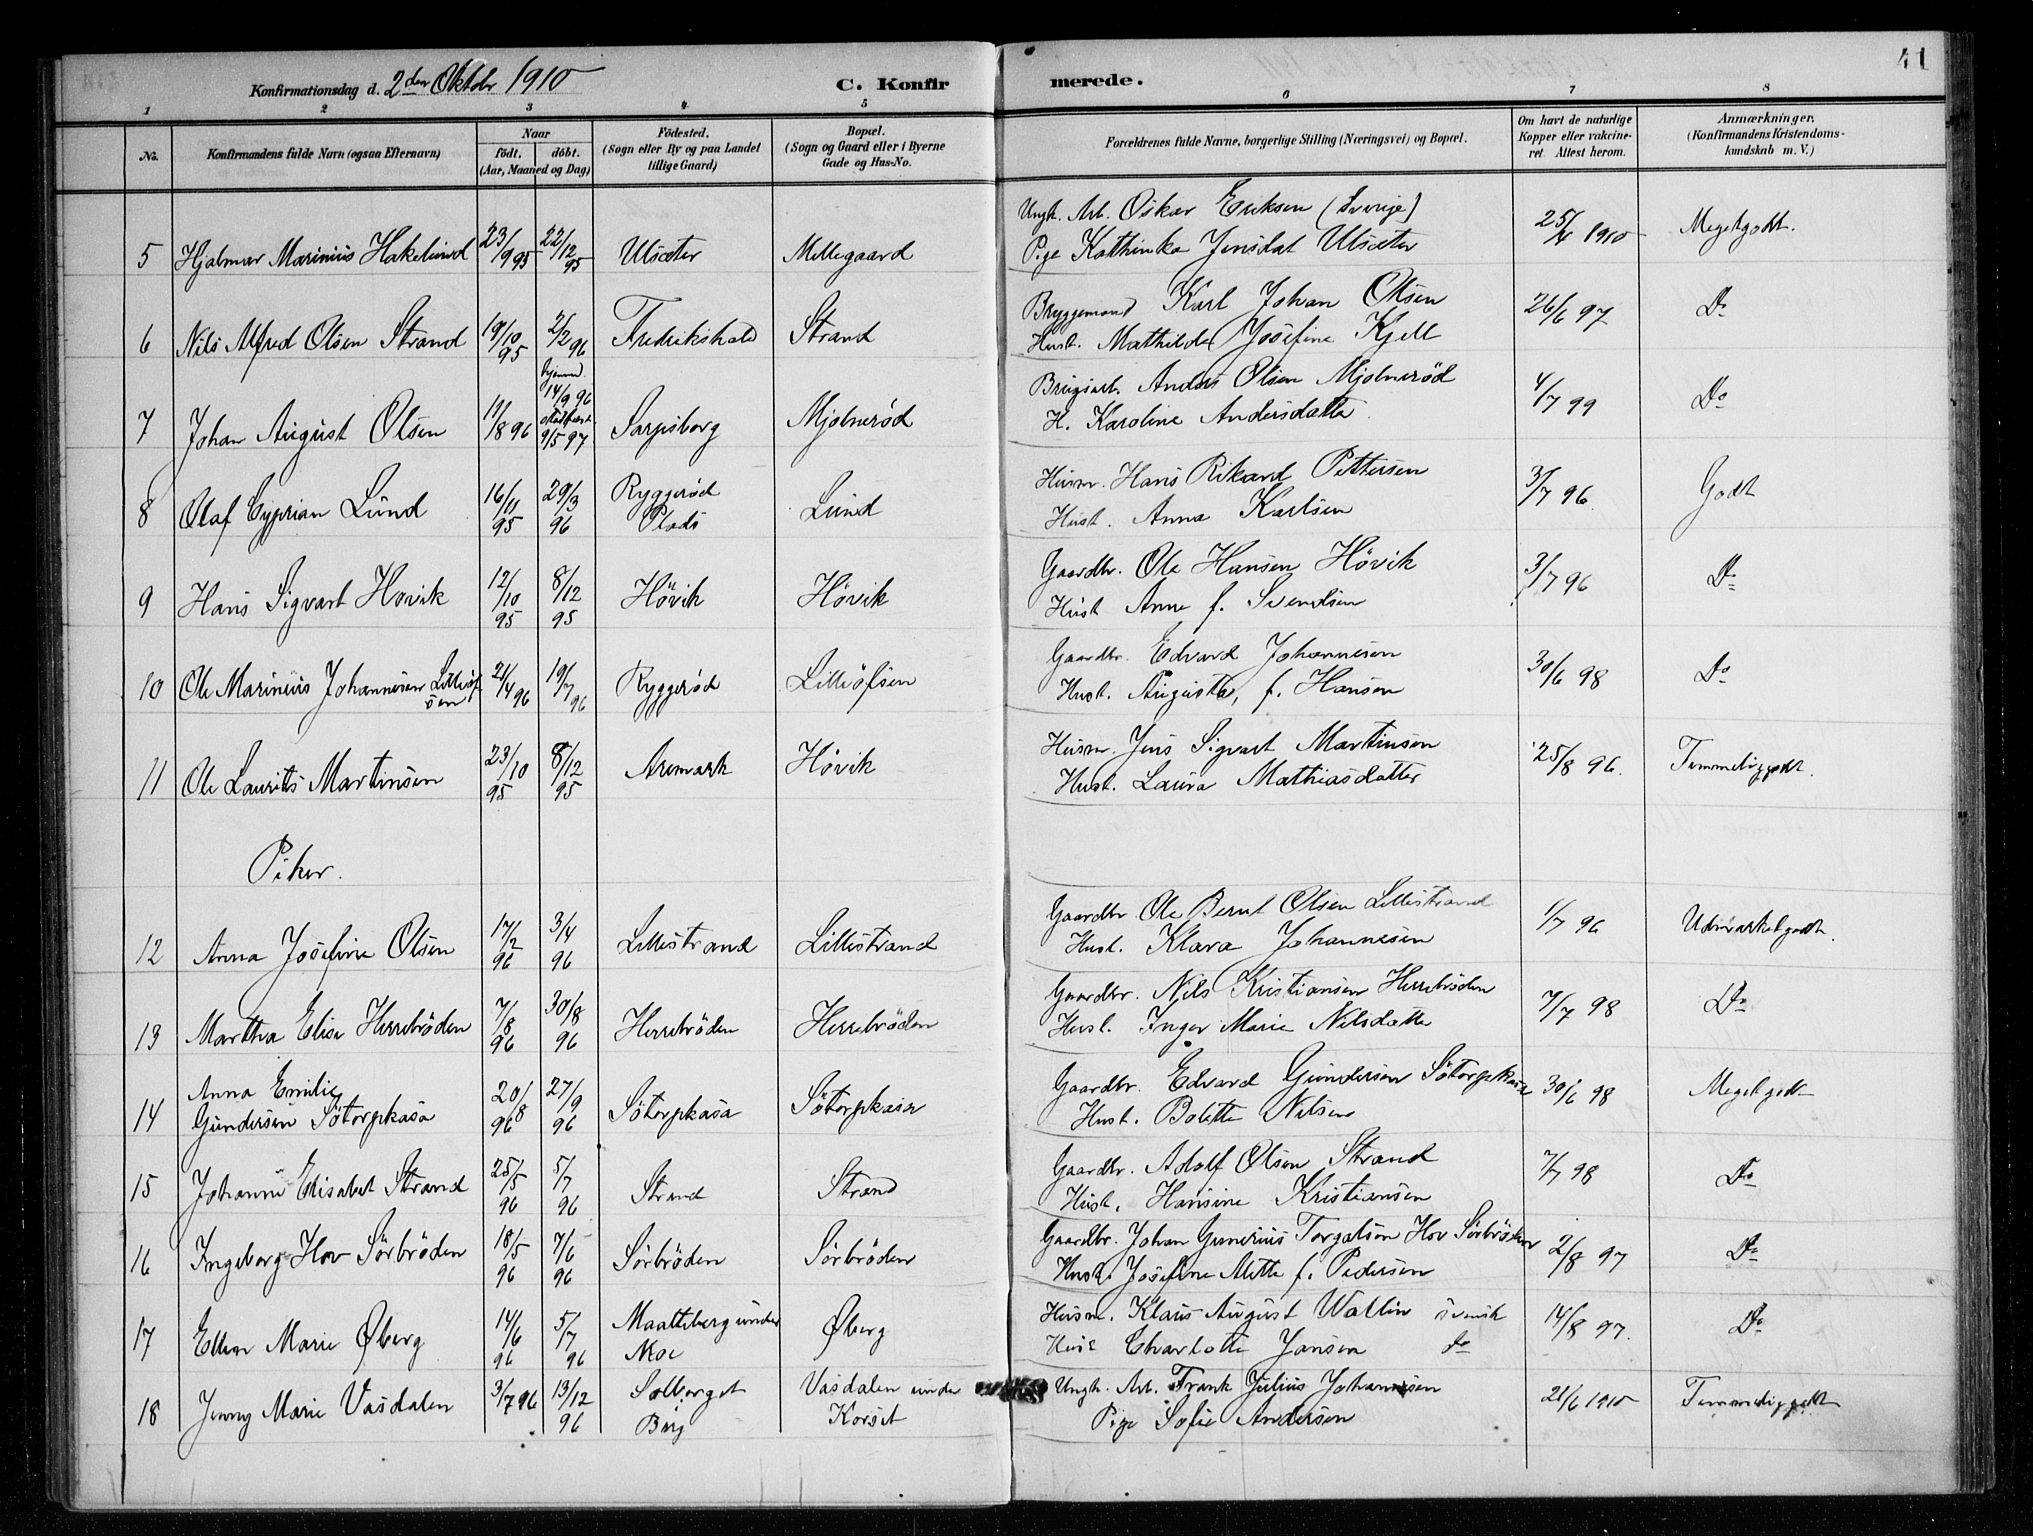 41
Konfirmationsdag d. 2den Oktobr 1910
C. Konfirmerede.
1 2 3 4 5 6 7 8
No.
Konfirmandens fulde Navn (ogsaa Efternavn)
Naar
födt. döbt.
(Aar, Maaned og Dag)
Födested.
(Sogn eller By og paa Landet
tillige Gaard)
Bopæl.
(Sogn og Gaard eller i Byerne
Gade og Hus-No.
Forældrenes fulde Navne, borgerlige Stilling (Næringsvei) og Bopæl.
Om havt de naturlige
Kopper eller vakcine-
ret Attest herom.
Anmærkninger.
(Konfirmandens Kristendoms-
kundskab m. V.)
5 Hjalmar Marinius Hakelund 23/9 95 22/12 95 Ulsæter Mellegaard Ungk. Arb. Oskar Eriksen (Sverige) 25/4 1910 Megetgodt.
Pige Kathinka Jensdat Ulsæter
6 Nils Alfred Olsen Strand 19/10 95 2/2 96 Fredrikshald Strand Bryggemand Karl Johan Olsen 26/6 97 Do
Hust. Mathilde Josefine Kjell
7 Johan August Olsen 11/8 96 hjemmed. 14/9 96 stadfæst 9/5 97 Sarpsborg Mjölnerød Brugsarb. Anders Olsen Mjølnerød 4/7 99 Do
H. Karoline Andersdatter
8 Olaf Cyprian Lund 16/11 95 29/3 96 Ryggerød Plads Lund Husm. Hans Rikard Pettersen 3/7 96. Godt
Hust. Anna Karlsen
9 Hans Sigvart Høvik 12/10 95 8/12 95 Hövik Høvik Gaardbr. Ole Hansen Høvik 3/7 96 Do
Hust Anne f. Svendsen
10 Ole Marinius Johannesen Lilleöfsen 21/4 96 19/7 96 Ryggerød Lilleöfsen Gaardbr. Edvard Johannesen 30/6 98 Do
Hust. Augusta, f. Hansen
11 Ole Laurits Martinsen 23/10 95 8/12 95 Aremark Høvik Husm. Jens Sigvart Martinsen 25/8 96. Temmeliggodt.
Hust. Laura Mathiasdatter
Piker.
12 Anna Josefine Olsen 17/2 96 3/4 96 Lillestrand Lillestrand Gaardbr Ole Bernt Olsen Lillestrand 1/7 96 Udmærketgodt.
Hust. Klara Johannesen
13 Martha Elise Herrebröden 7/8 96 30/8 96 Herrebröden Herrebröden Gaardbr. Nils Kristiansen Herrebröden 7/7 98 Do
Hust. Inger Marie Nilsdatter
14 Anna Emilie Gundersen Sötorpkasa 20/8 96 27/9 96 Sötorpkasa Sötorpkasa Gaardbr. Edvard Gundersen Sötorpkasa 30/6 98 Megetgodt
Hust. Bolette Nilsen
15 Johanne Elisabet Strand 25/5 96 5/7 96 Strand Strand Gaardbr. Adolf Olsen Strand 7/7 98 Do
Hust. Hansine Kristiansen
16 Ingeborg Hov Sörbröden 18/5 96 7/6 96 Sörbröden Sörbröden Gaardbr. Johan Gunerius Torgalsen Hov Sörbröden 2/8 97 Do
Hust. Josefine Mette f. Pedersen
17 Ellen Marie Øberg 14/6 96 5/7 96 Maatteberg under Nkoe Øberg Husm. Klaus August Wallin svensk 14/8 97. Do
Hust Charlotte Jansen do
18 Jenny Marie Vasdalen 3/7 96 13/12 96 Solberget Berg Vasdalen under Korset Ungk. Arb. Frank Julius Johannesen 21/6 1910 Temmeliggodt
Pige Sofie Andersen